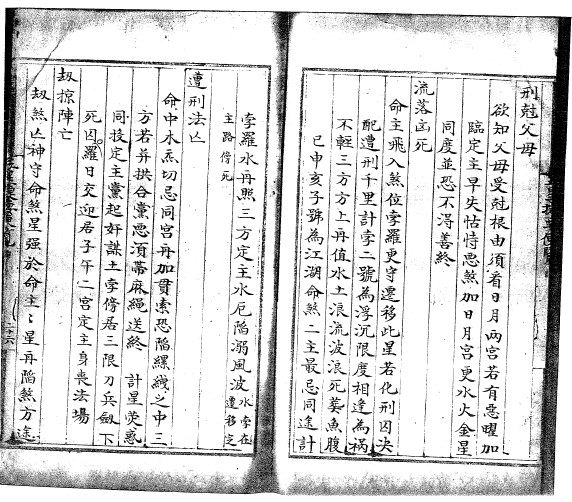 刑尅父母
欲知父母受尅根由須看日月兩宮若有惡曜加
臨定主早失怙恃惡煞加日月宮更水火金星
同度並恐不得善終
流落凶死
命主飛入煞位孛羅更守遷移此星若化刑囚决
配遭刑千里計孛二號為浮沉限度相逢為禍
不輕三方方上再值水土浪流波浪死葬魚腹
己申亥子號為江湖命煞二主最忌同途計
孛羅水再照三方定主水厄陷溺風波水孛在遷移定
主路傍死
遭刑法亾
命中木炁切忌同宮再加貫索恐陷縲絏之中三
方若并拱合黨惡須帶麻繩送終 計星熒惑
同投定主黨起奸謀土孛傍居三限刀兵劍下
死囚羅日交迎居子午二宮定主身喪法場
刼掠陣亡
刼煞亾神守命煞星强於命主〻星再陷煞方途